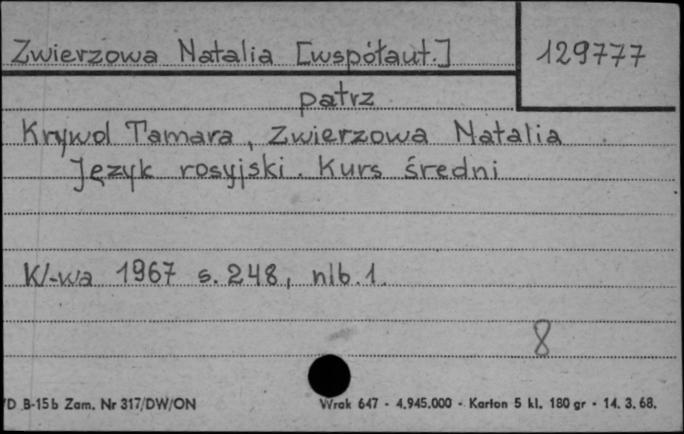 Zwierzowa Natalia [współaut.]
129777
patrz
Krywol Tamara, Zwierzowa Natalia
Język rosyjski. Kurs średni
W-wa 1967 s. 248, nlb. 1.
8
D B-15b Zam. Nr 317/DW/ON
Wrak 647 - 4.945.000 - Karton 5 kl. 180 gr - 14. 3. 68.